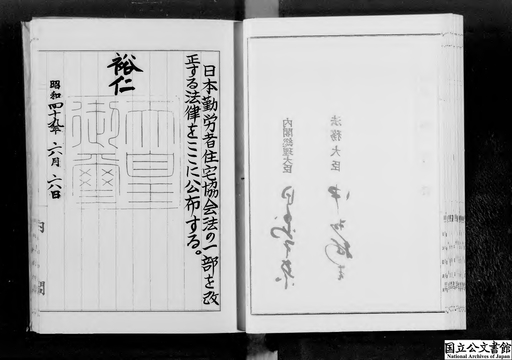 日本勤労者住宅協会法の一部を改
正する法律をここに公布する。
裕仁
天皇
御璽
昭和四十九年六月六日
内閣
法務大臣
内閣総理大臣
国立公文書館
National Archives of Japan